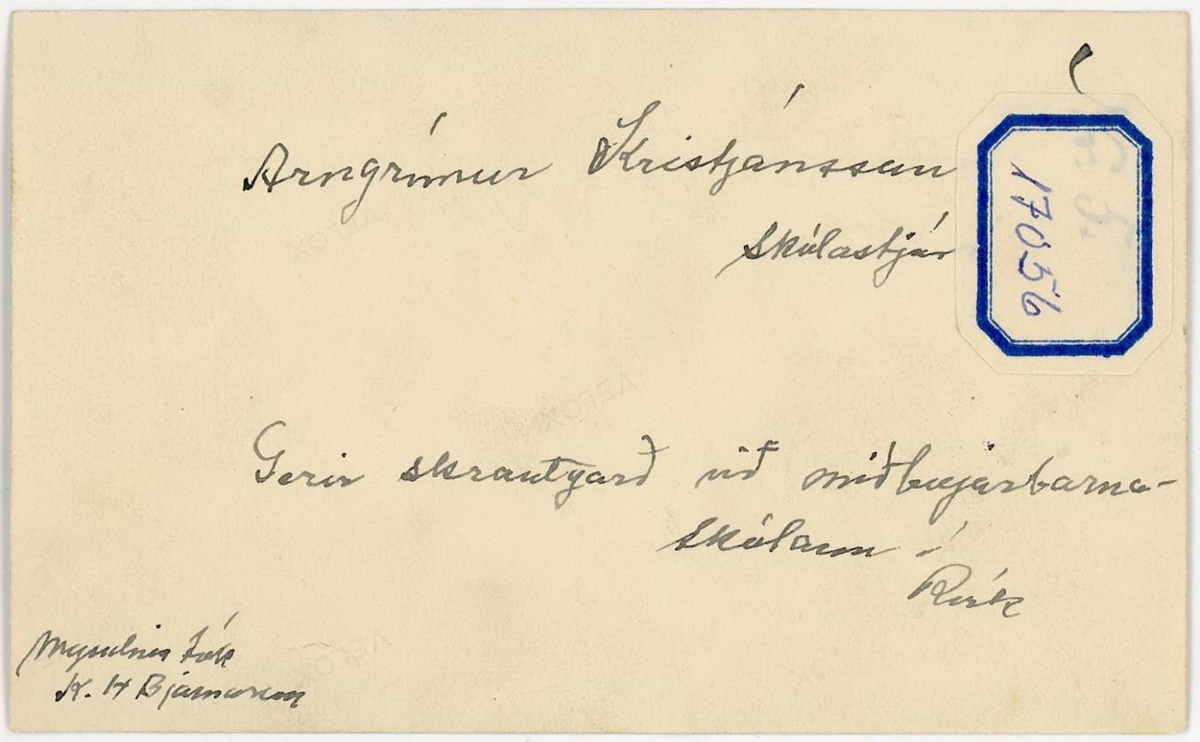 Arngrímur Kristjánsson
skólastjór
17056
Gerir skrautgarð við miðbæjarbarna-
skólann í
Rvík
Myndina tók
K. H Bjarnarson
VELOX
VELOX
VELOX